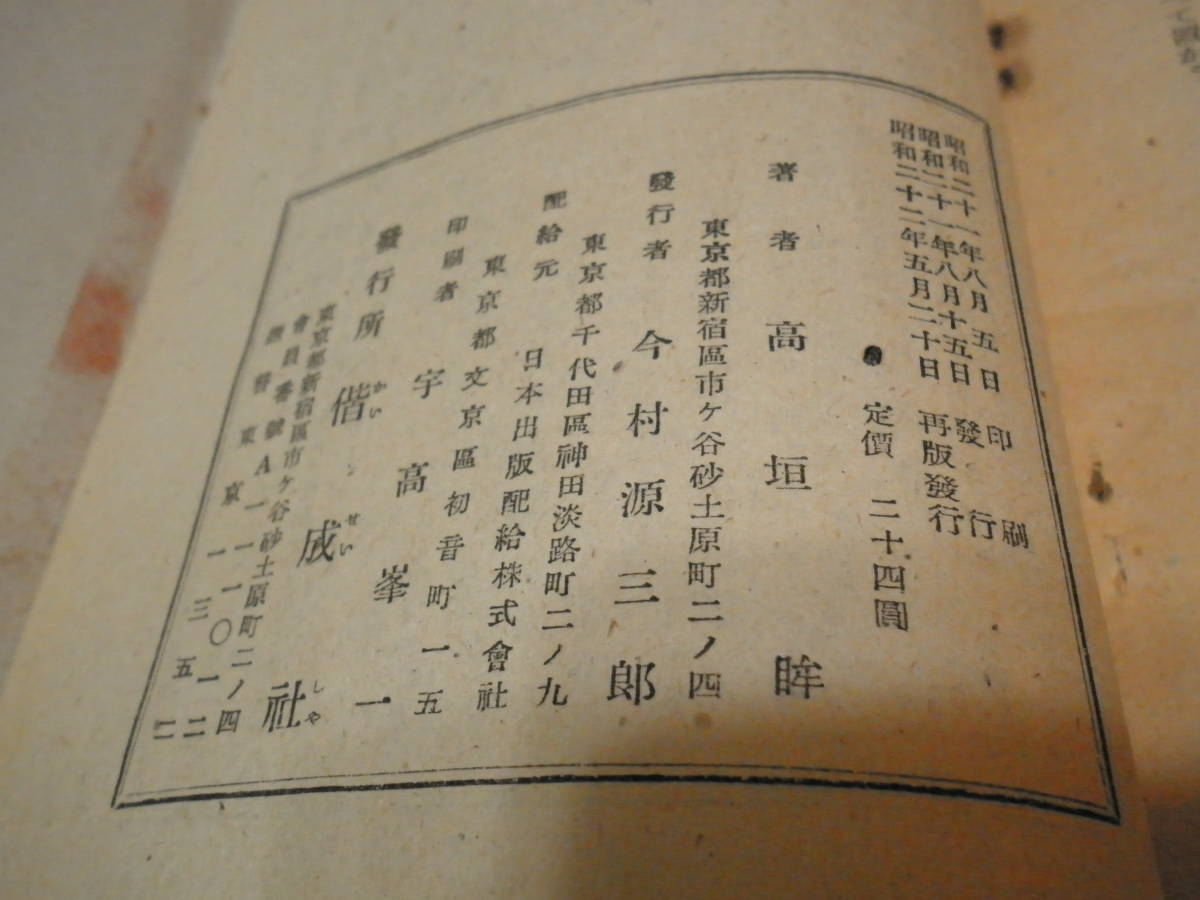 昭和二十一年八月五日 印刷
昭和二十一年八月十五日 發行
昭和二十二年五月二十日 再版發行
定價 二十四圓
著者 高垣眸
東京都新宿區市ケ谷砂土原町二ノ四
發行者 今村源三郎
東京都千代田區神田淡路町二ノ九
配給元 日本出版配給株式會社
東京都文京區初音町一五
印刷者 宇高峯一
發行所 偕成社
かい せい しや
東京都新宿區市ケ谷砂土原町二ノ四
會員番號A一一〇一二
振替東京一三五二